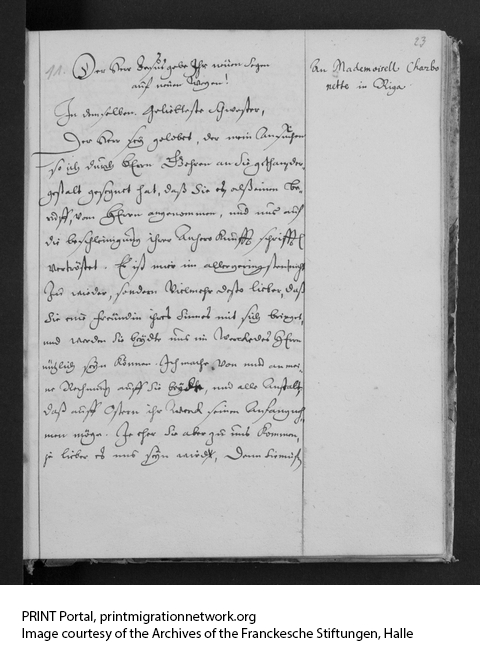 23
An Mademoisell Charbo
nette in Riga
11. Der Herr Jesus gebe Ihr neuen Segen
auf neuen Wegen!
In demselben Geliebteste Schwester,
Der Herr sey gelobet, der mein Ansuchen
so ich durch Herrn Gehren an Sie gethan, der¬
gestalt gesegnet hat, daß Sie es alß einen be¬
ruff, vom Herrn angenommen, und uns auf
die beschleinigung ihrer Anhero Kunfft schrifftl
vertröstet. Es ist mir im allergeringsten nicht
zu wieder, sondern vielmehr desto lieber, daß
Sie eine freundin ihres Sinnes mit sich bringet,
und werden Sie beyde uns im Wercke des Herrn
nützlich seyn können. Ich mache von nun an mei¬
ne Rechnung auff Sie beyde, und alle Anstalt,
daß auff Ostern ihr Werck seinen Anfang neh
men möge. Je eher Sie aber zu uns kommen,
je lieber es uns seyn wird, Denn Sie muß
PRINT Portal, printmigrationnetwork.org
Image courtesy of the Archives of the Franckesche Stiftungen, Halle